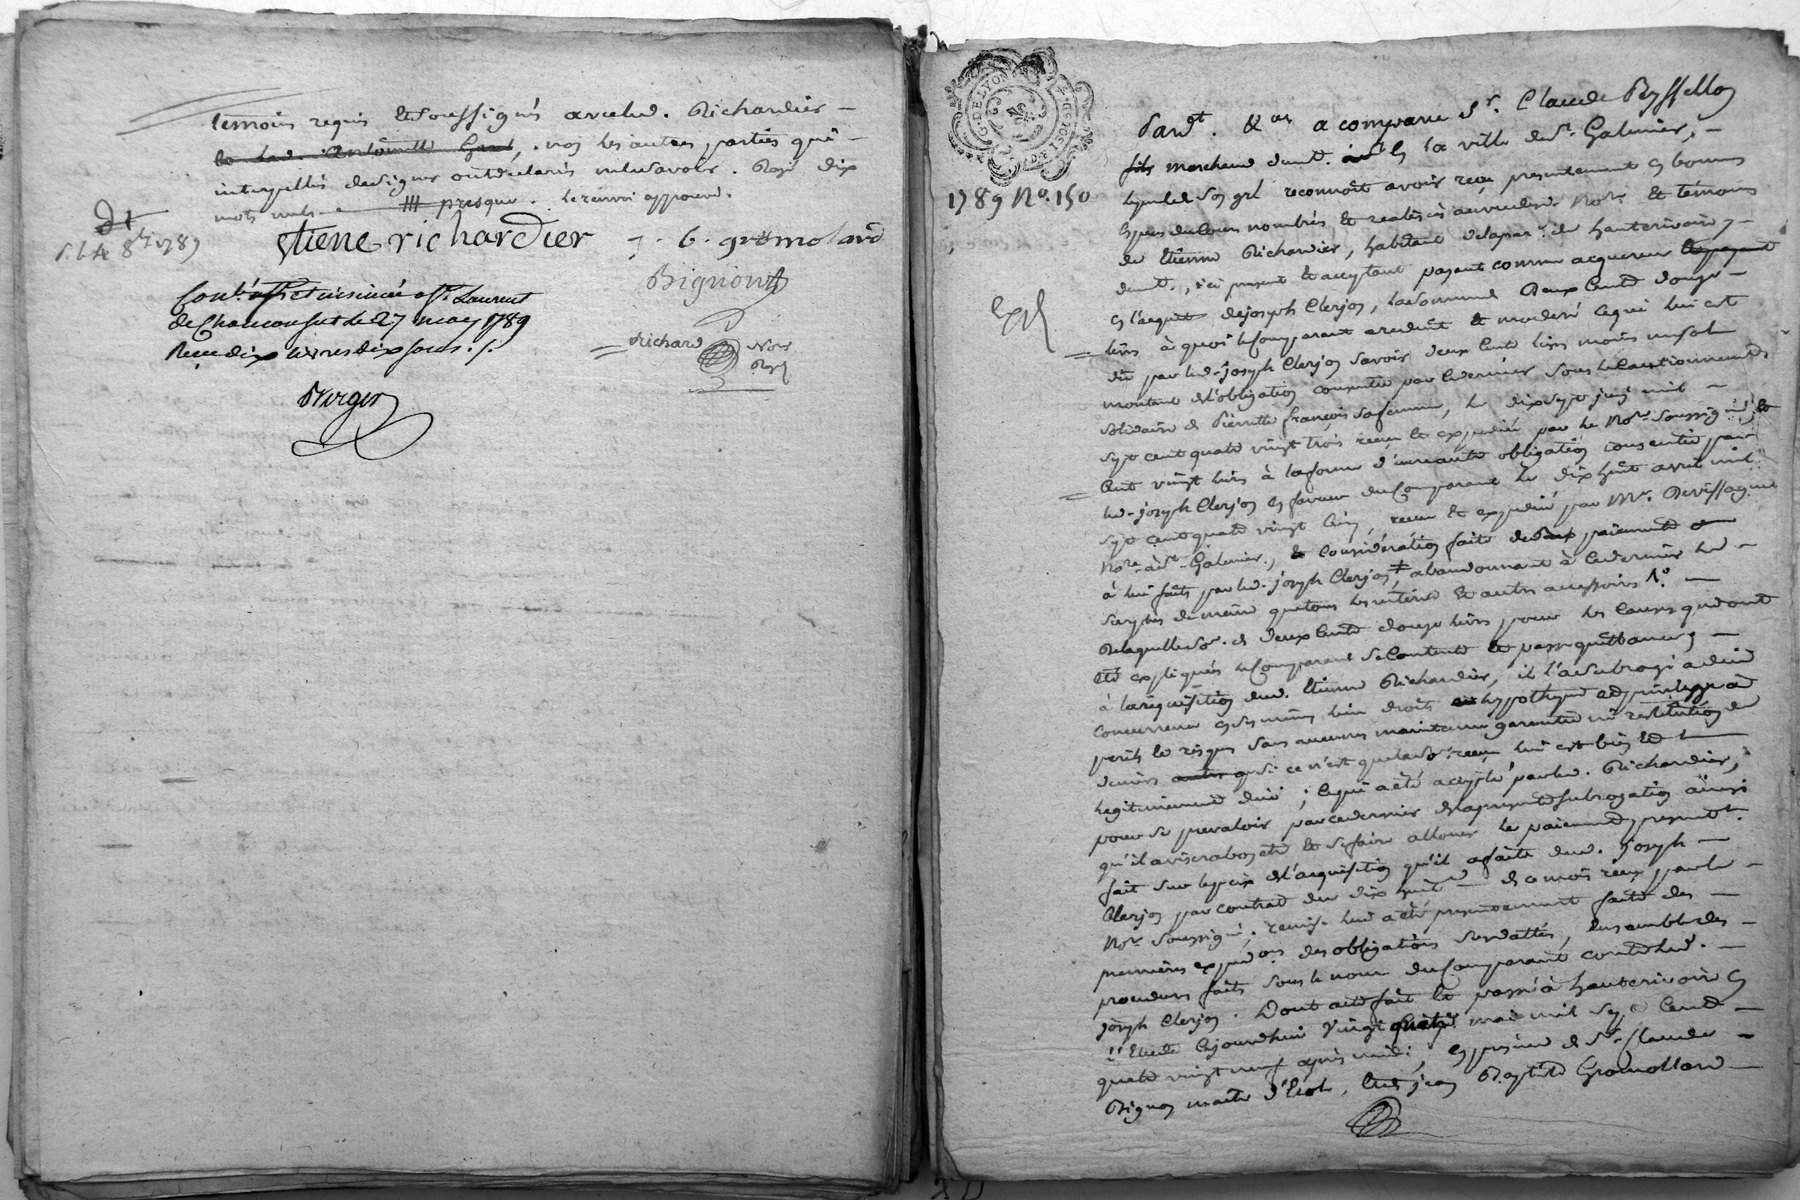 temoins requis et soussignés avec led. Richardier –
et lad. Antoinette, non les autres parties qui –
interpellés de signer ont declarés ne le savoir. Rayé dix
mots nuls. presque. le renvoi approuvé.
Etiene richardier
G. gromolard
Bignon
Richard
Nore
Royl
8bre 1789
Conlé et insinué à St. Laurent
de Chamousset le 27 may 1789
Reçu dix livres dix sous.
Verger
G. DE LYON
1789 No. 150
Pardt. &a. a comparu Sr. Claude
fils marchand demt. en la ville de St. Galmier, –
lequel de son gré reconnoit avoir reçu presentement en bonnes
especes de cours nombrés et realisés au vu desd. Nore. et temoins
de Etienne Richardier, habitant de la parse. de hauterivoire, –
demt., ici present et acceptant payant comme acquereur
en l'acquit de joseph Clerjon, la somme de Deux Cents douze –
livres à quoi le Comparant a reduit et moderé ce qui lui est
dû par led. joseph Clerjon savoir deux Cents livres moins un sol
montant de l'obligation consentie par ce dernier sous le Cautionnement
solidaire de Pierrette françois sa femme, le dix sept juin mil –
sept cent quatre vingt trois recue et expediée par le Nore. soussigné, et
Cent vingt livres à la forme d'une autre obligation consentie par
led. joseph Clerjon en faveur du Comparant le dix huit avril mil
sept cent quatre vingt Cinq, recue et expediée par Me.
Nore. à St. Galmier, Consideration faite de deux paiements
à lui faits par led. joseph Clerjon, abandonnant à ce dernier led –
surplus de même que tous les interets et autres accessoires. –
De laquelle so. de deux Cents douze livres pour les Causes qui ont
été expliquées le Comparant se Contente et passe quittance, –
à la requisition dud. Etienne Richardier, il l'a subrogé à due
concurrence en ses mêmes lieu droits hypotheque et privilege à ses
perils et risques sans aucune maintenue garantie ni restitution de
deniers si ce n'est que la so. reçue lui est bien et
legitimement due ; ce qui a été accepté par led. Richardier,
pour se prevaloir par ce dernier de la presente subrogation ainsi
qu'il avisera bon être et se faire allouer le paiement presentt.
fait sur le prix de l'acquisition qu'il a faite dud. joseph –
Clerjon par contrat du dix huit de ce mois recu par le –
Nore. soussigné, remise lui a été presentement faite des –
premieres expedons. des obligations susdattés, ensemble des –
procedures faites sous le nom du Comparant contre led. –
joseph Clerjon. Dont acte fait et passé à hauterivoire en
l'Etude Cejourdhui Vingt quatre mai mil sept Cent –
quatre vingt neuf après midi, en presence de Sr. Claude –
Bignon maître d'école, et de jean Baptiste Gromollard –